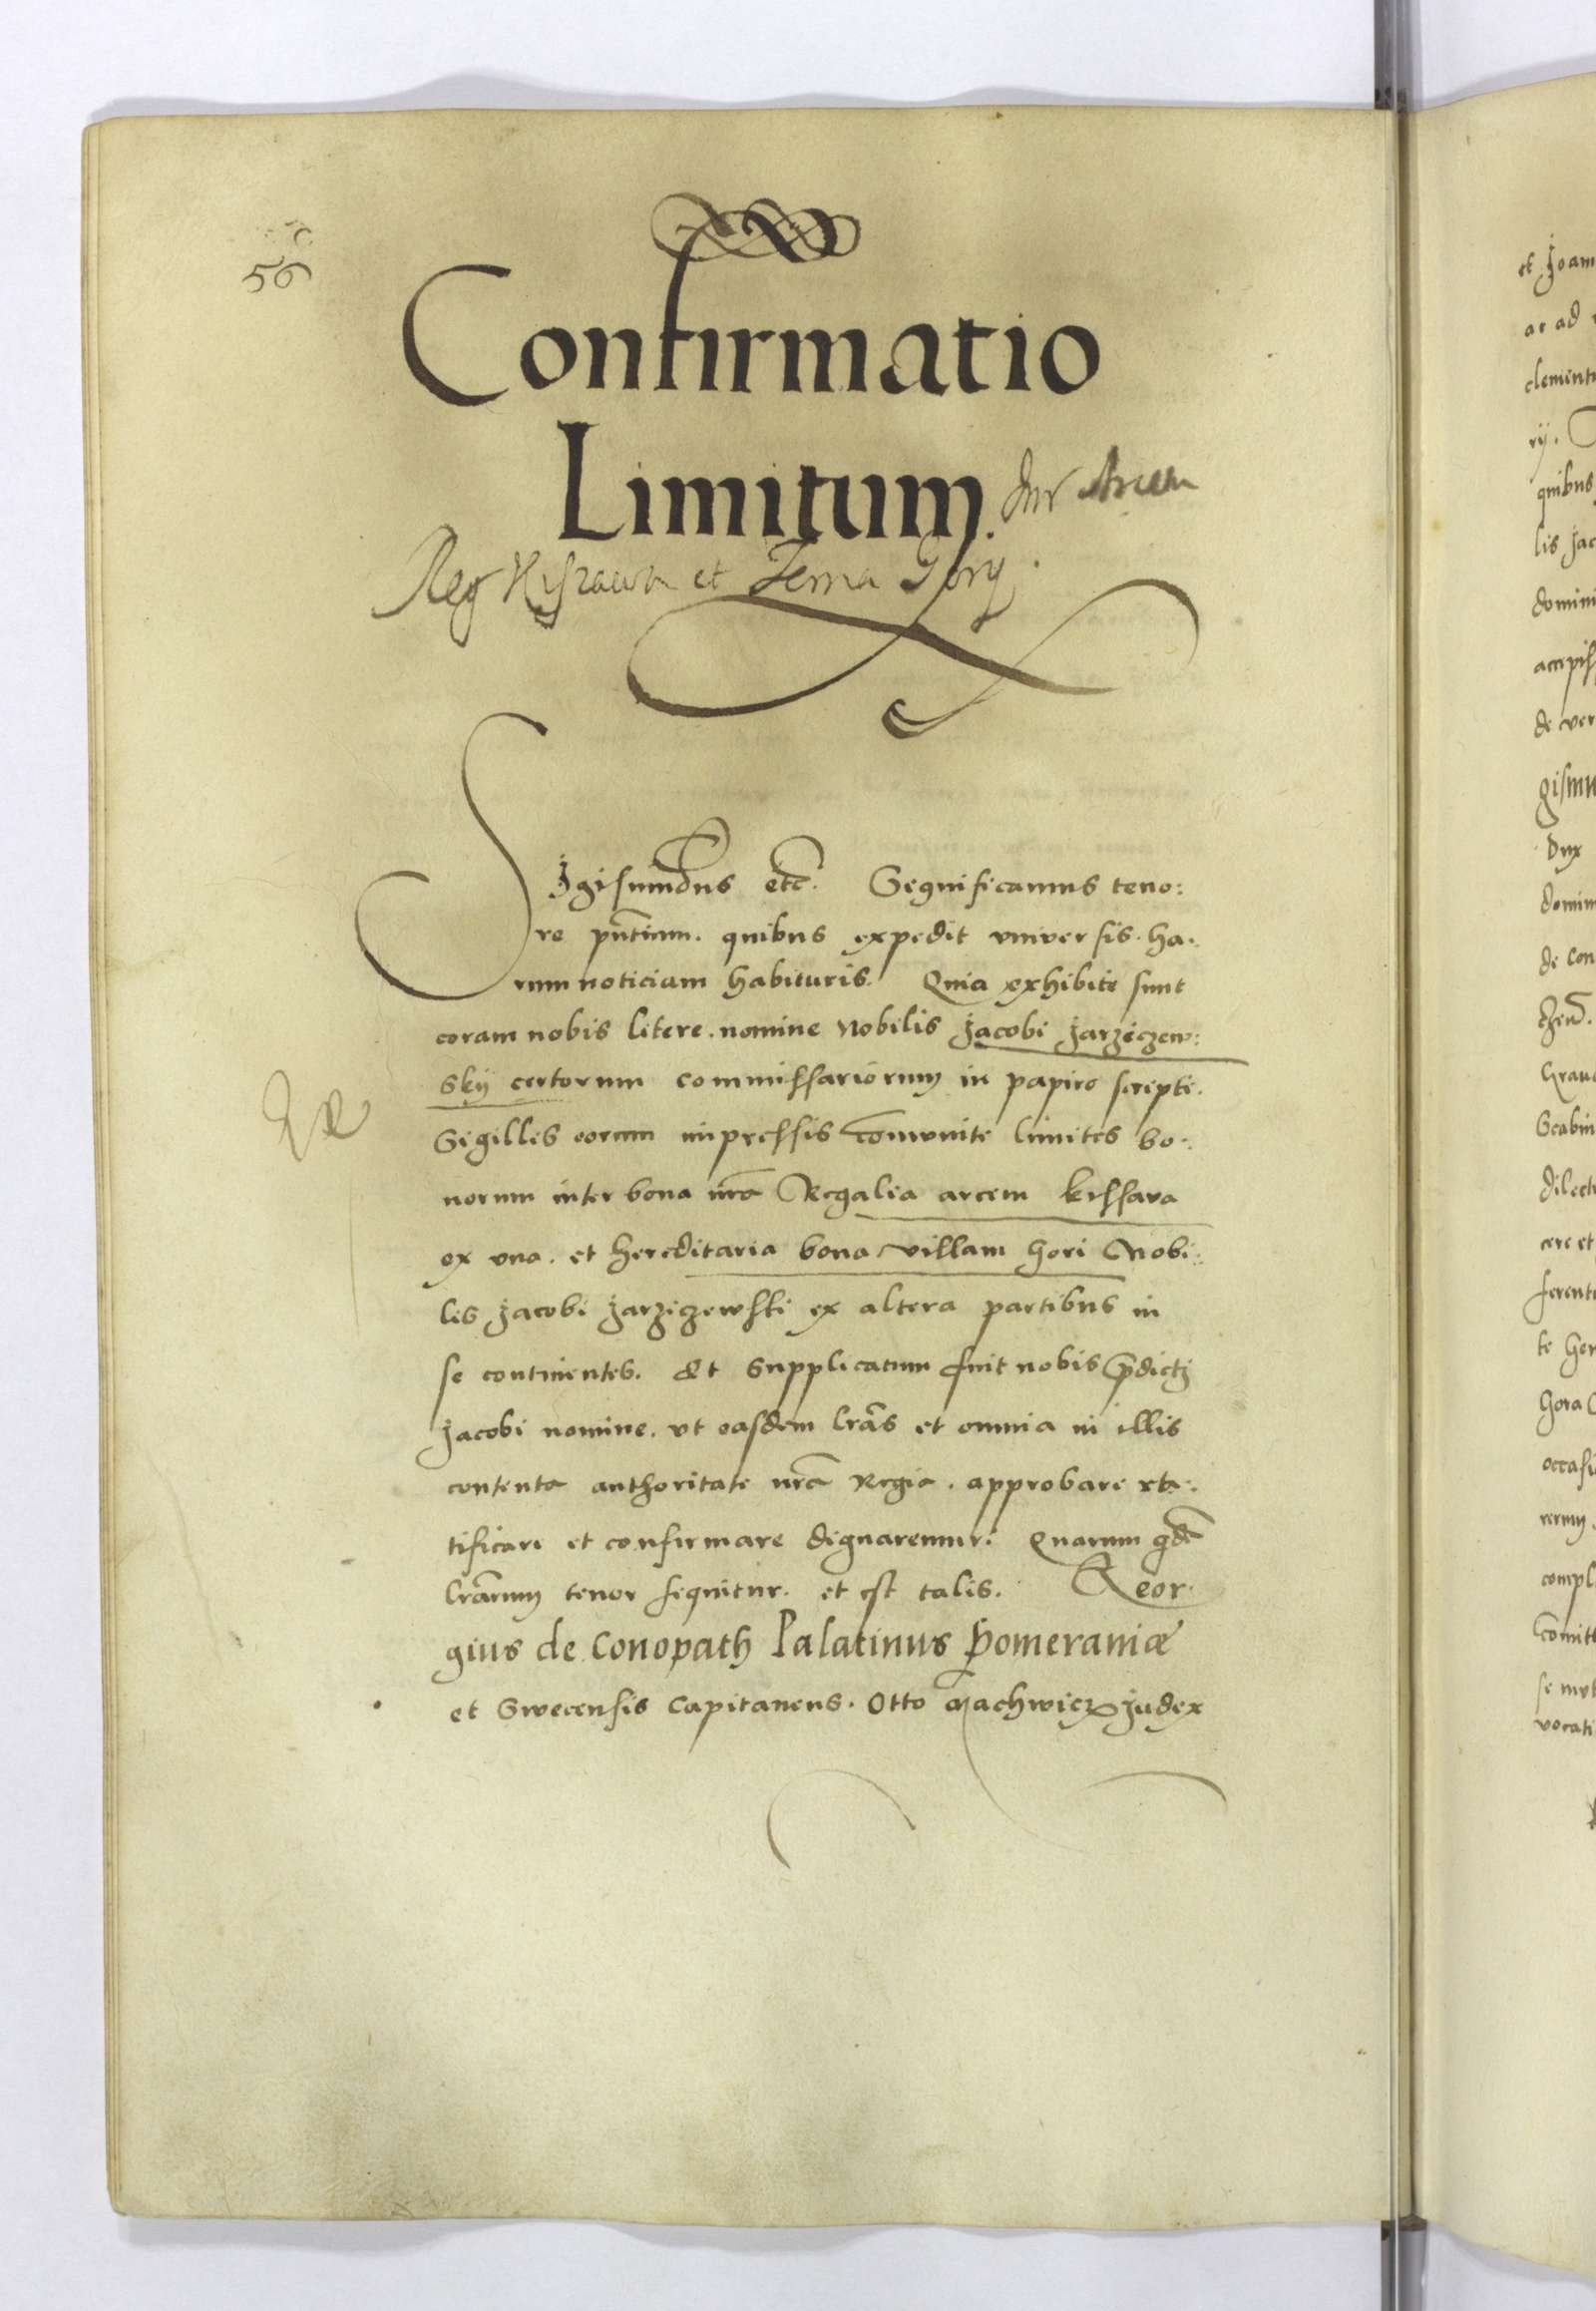 56
Confirmatio
Limitum. Int Arcem
Reg Kiszawa et Gory.
Sigismūdus etc̄. Significamus teno:
re pn̄tium. quibus expedit vniversis. ha:
rum noticiam habituris. Quia exhibite sunt
coram nobis litere. nomine Nobilis Jacobi Jarziczew:
skÿ certorum commissariorum in papiro scripte.
Sigillis eorum impressis com̄vnite limites bo:
norum inter bona nr̄a Regalia arcem kissava
ex vna. et hereditaria bona villam Gori Nobi:
lis Jacobi Jarziczewski ex altera partibus in
se continentes. Et supplicatum fuit nobis p̄dictj
Jacobi nomine. vt easdem lrās et omnia in illis
contenta authoritate nrā Regia. approbare ra:
tificare et confirmare dignaremur: Quarum qdē
lrārum tenor sequitur. et est talis. Geor:
gius de Conopath Palatinus Pomeraniæ
et Swecensis Capitaneus. Otto Machwicz Judex
et Joan
ac ad
clement
rÿ.
quibus
lis Jac
domini
accepiss
de ver
gismu
Dux
domin
de con
Scabin
dilect
cere et
ferent
te
Gora
occasi
rerum
compl
com̄itt
vocati